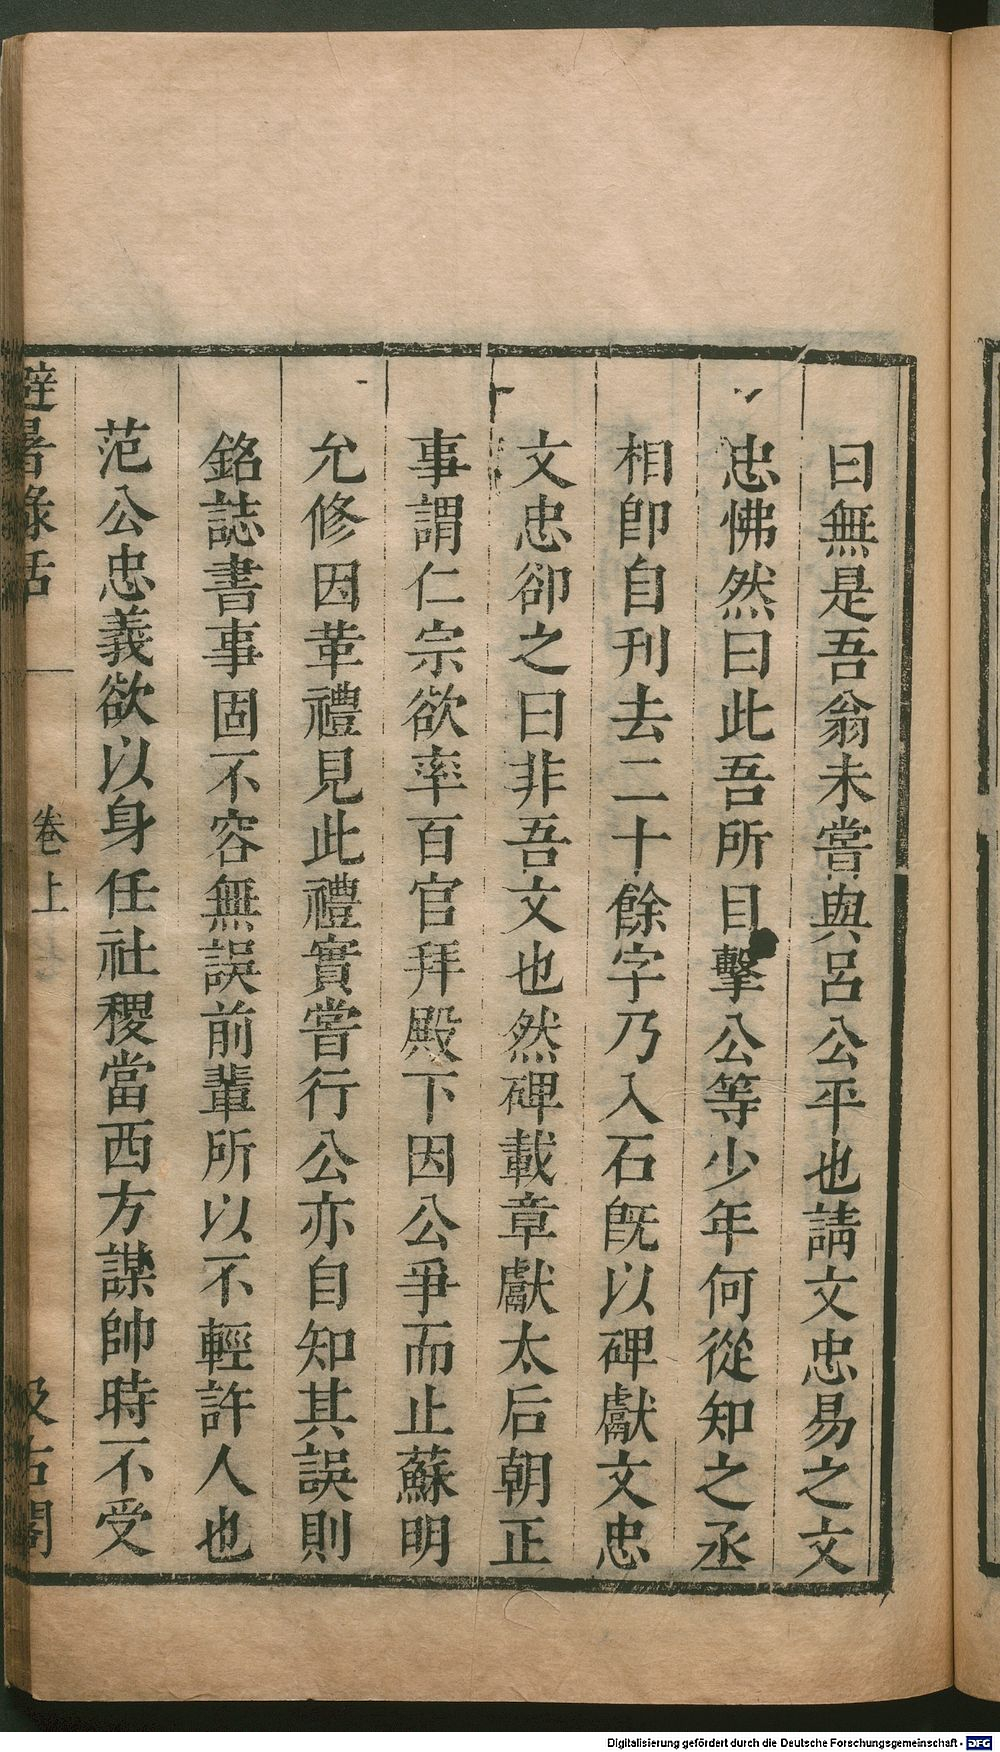 曰無是吾翁未嘗與呂公平也請文忠易之文
忠怫然曰此吾所目擊公等少年何從知之丞
相卽自刊去二十餘字乃入石旣以碑獻文忠
文忠卻之曰非吾文也然碑載章獻太后朝正
事謂仁宗欲率百官拜殿下因公爭而止蘇明
允修因革禮見此禮實嘗行公亦自知其誤則
銘誌書事固不容無誤前輩所以不輕許人也
范公忠義欲以身任社稷當西方謀帥時不受
避暑錄話
卷上
汲古閣
Digitalisierung gefördert durch die Deutsche Forschungsgemeinschaft - DFG